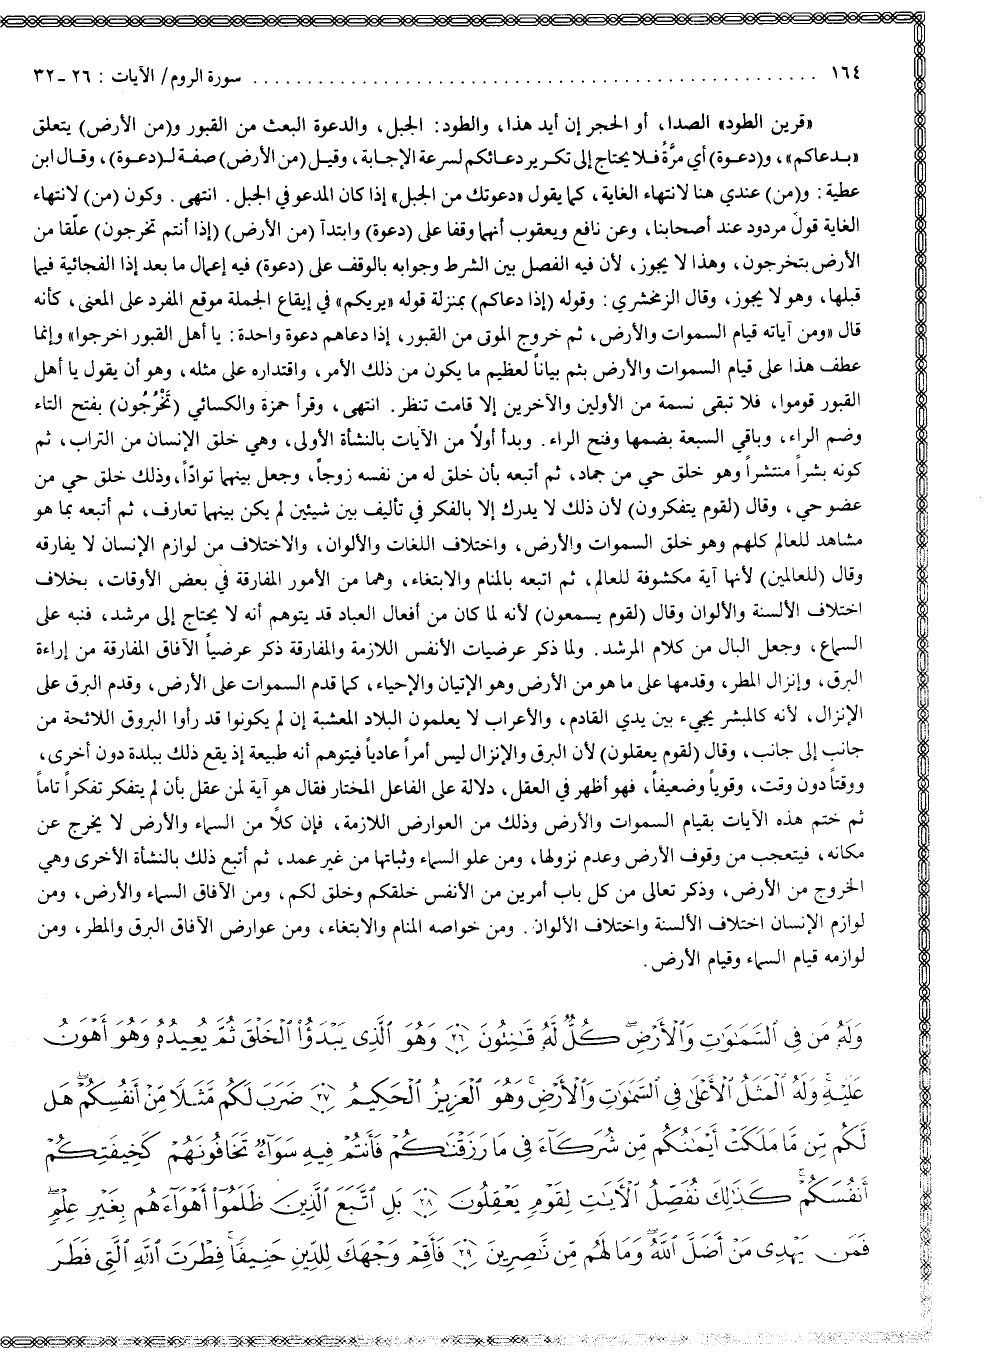 ١٦٤ ................................................ سورة الروم/ الآيات : ٢٦ -٣٢
«قرين الطود» الصدا، أو الحجر إن أيد هذا، والطود: الجبل، والدعوة البعث من القبور و(من الأرض) يتعلق
«بدعاكم»، و(دعوة) أي مرَّةً فلا يحتاج إلى تكرير دعائكم لسرعة الإجابة، وقيل (من الأرض) صفة لـ(دعوة)، وقال ابن
عطية: و(من) عندي هنا لانتهاء الغاية، كما يقول «دعوتك من الجبل» إذا كان المدعو في الجبل. انتهى. وكون (من) لانتهاء
الغاية قول مردود عند أصحابنا، وعن نافع ويعقوب أنهما وقفا على (دعوة) وابتدآ (من الأرض) (إذا أنتم تخرجون) علّقا من
الأرض بتخرجون، وهذا لا يجوز، لأن فيه الفصل بين الشرط وجوابه بالوقف على (دعوة) فيه إعمال ما بعد إذا الفجائية فيما
قبلها، وهو لا يجوز، وقال الزمخشري: وقوله (إذا دعاكم) بمنزلة قوله «يريكم» في إيقاع الجملة موقع المفرد على المعنى، كأنه
قال «ومن آياته قيام السموات والأرض، ثم خروج الموتى من القبور، إذا دعاهم دعوة واحدة: يا أهل القبور اخرجوا» وإنما
عطف هذا على قيام السموات والأرض بثم بياناً لعظيم ما يكون من ذلك الأمر، واقتداره على مثله، وهو أن يقول يا أهل
القبور قوموا، فلا تبقى نسمة من الأولين والآخرين إلا قامت تنظر. انتهى، وقرأ حمزة والكسائي (تَخْرُجُون) بفتح التاء
وضم الراء، وباقي السبعة بضمها وفتح الراء. وبدأ أولاً من الآيات بالنشأة الأولى، وهي خلق الإنسان من التراب، ثم
كونه بشراً منتشراً وهو خلق حي من جماد، ثم أتبعه بأن خلق له من نفسه زوجاً، وجعل بينهما توادّاً، وذلك خلق حي من
عضو حي، وقال (لقوم يتفكرون) لأن ذلك لا يدرك إلا بالفكر في تأليف بين شيئين لم يكن بينهما تعارف، ثم أتبعه بما هو
مشاهد للعالم كلهم وهو خلق السموات والأرض، واختلاف اللغات والألوان، والاختلاف من لوازم الإنسان لا يفارقه
وقال (للعالمين) لأنها آية مكشوفة للعالم، ثم اتبعه بالمنام والابتغاء، وهما من الأمور المفارقة في بعض الأوقات، بخلاف
اختلاف الألسنة والألوان وقال (لقوم يسمعون) لأنه لما كان من أفعال العباد قد يتوهم أنه لا يحتاج إلى مرشد، فنبه على
السماع، وجعل البال من كلام المرشد. ولما ذكر عرضيات الأنفس اللازمة والمفارقة ذكر عرضياً الآفاق المفارقة من إراءة
البرق، وإنزال المطر، وقدمها على ما هو من الأرض وهو الإتيان والإحياء، كما قدم السموات على الأرض، وقدم البرق على
الإنزال، لأنه كالمبشر يجيء بين يدي القادم، والأعراب لا يعلمون البلاد المعشبة إن لم يكونوا قد رأوا البروق اللائحة من
جانب إلى جانب، وقال (لقوم يعقلون) لأن البرق والإنزال ليس أمراً عادياً فيتوهم أنه طبيعة إذ يقع ذلك ببلدة دون أخرى،
ووقتاً دون وقت، وقوياً وضعيفاً، فهو أظهر في العقل، دلالة على الفاعل المختار فقال هو آية لمن عقل بأن لم يتفكر تفكراً تاماً
ثم ختم هذه الآيات بقيام السموات والأرض وذلك من العوارض اللازمة، فإن كلاً من السماء والأرض لا يخرج عن
مكانه، فيتعجب من وقوف الأرض وعدم نزولها، ومن علو السماء وثباتها من غير عمد، ثم أتبع ذلك بالنشأة الأخرى وهي
الخروج من الأرض، وذكر تعالى من كل باب أمرين من الأنفس خلقكم وخلق لكم، ومن الآفاق السماء والأرض، ومن
لوازم الإنسان اختلاف الألسنة واختلاف الألوان. ومن خواصه المنام والابتغاء، ومن عوارض الآفاق البرق والمطر، ومن
لوازمه قيام السماء وقيام الأرض.
وَلَهُۥ مَن فِى ٱلسَّمَٰوَٰتِ وَٱلْأَرْضِ ۖ كُلٌّ لَّهُۥ قَٰنِتُونَ ﴿٢٦﴾ وَهُوَ ٱلَّذِى يَبْدَؤُا۟ ٱلْخَلْقَ ثُمَّ يُعِيدُهُۥ وَهُوَ أَهْوَنُ
عَلَيْهِ ۚ وَلَهُ ٱلْمَثَلُ ٱلْأَعْلَىٰ فِى ٱلسَّمَٰوَٰتِ وَٱلْأَرْضِ ۚ وَهُوَ ٱلْعَزِيزُ ٱلْحَكِيمُ ﴿٢٧﴾ ضَرَبَ لَكُم مَّثَلًا مِّنْ أَنفُسِكُمْ ۖ هَل
لَّكُم مِّن مَّا مَلَكَتْ أَيْمَٰنُكُم مِّن شُرَكَآءَ فِى مَا رَزَقْنَٰكُمْ فَأَنتُمْ فِيهِ سَوَآءٌ تَخَافُونَهُمْ كَخِيفَتِكُمْ
أَنفُسَكُمْ ۚ كَذَٰلِكَ نُفَصِّلُ ٱلْءَايَٰتِ لِقَوْمٍ يَعْقِلُونَ ﴿٢٨﴾ بَلِ ٱتَّبَعَ ٱلَّذِينَ ظَلَمُوٓا۟ أَهْوَآءَهُم بِغَيْرِ عِلْمٍ ۖ
فَمَن يَهْدِى مَنْ أَضَلَّ ٱللَّهُ ۖ وَمَا لَهُم مِّن نَّٰصِرِينَ ﴿٢٩﴾ فَأَقِمْ وَجْهَكَ لِلدِّينِ حَنِيفًا ۚ فِطْرَتَ ٱللَّهِ ٱلَّتِى فَطَرَ